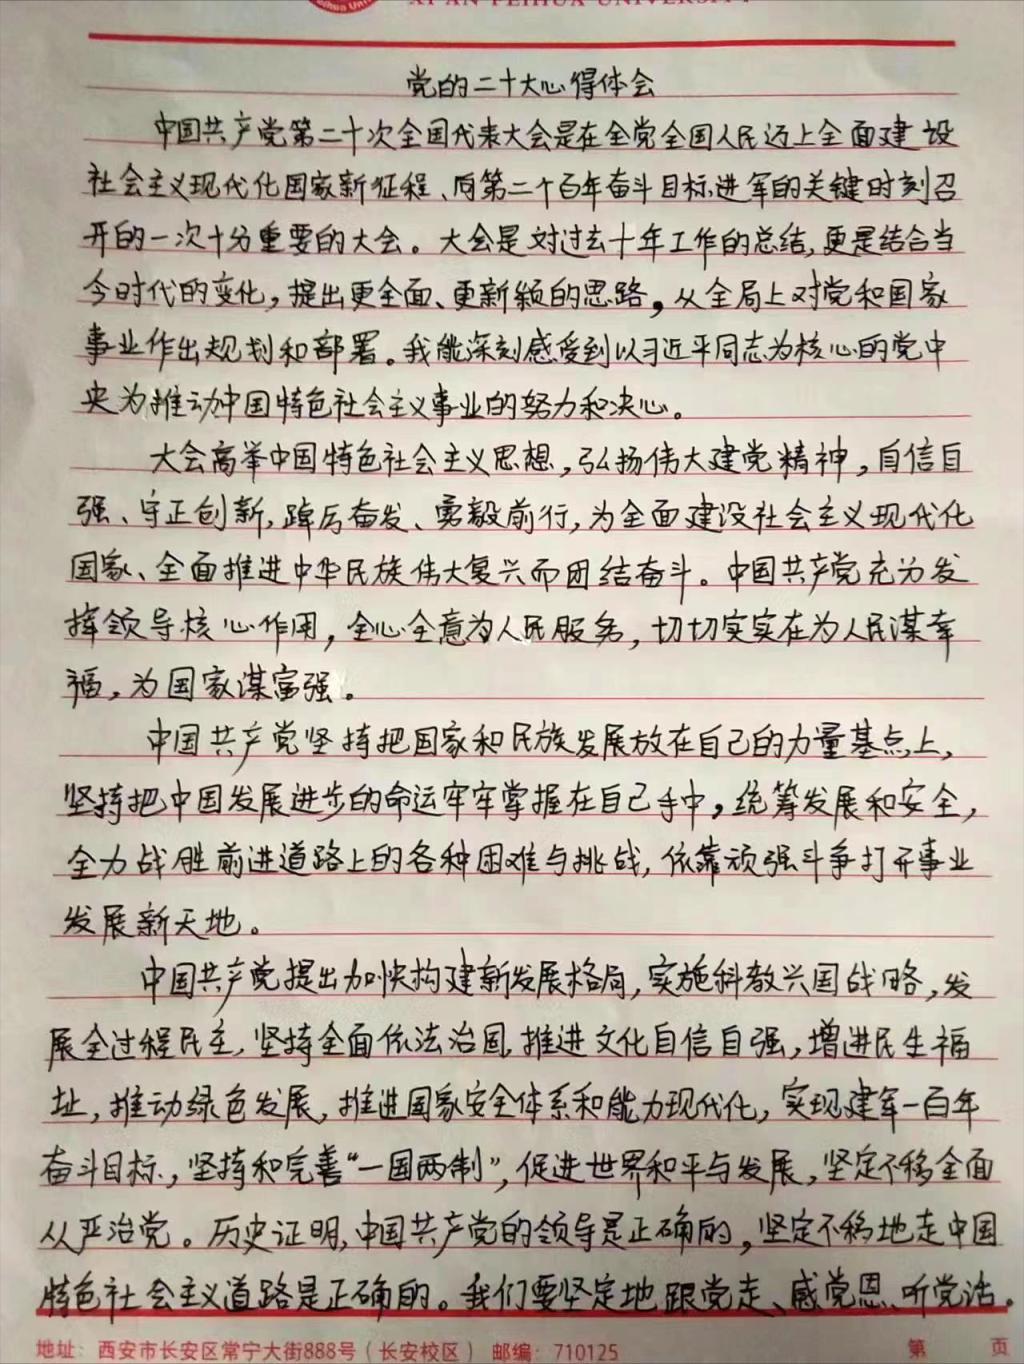 XI'AN PEIHUA UNIVERSITY
党的二十大心得体会
中国共产党第二十次全国代表大会是在全党全国人民迈上全面建设
社会主义现代化国家新征程、向第二个百年奋斗目标进军的关键时刻召
开的一次十分重要的大会。大会是对过去十年工作的总结,更是结合当
今时代的变化,提出更全面、更新颖的思路,从全局上对党和国家
事业作出规划和部署。我能深刻感受到以习近平同志为核心的党中
央为推动中国特色社会主义事业的努力和决心。
大会高举中国特色社会主义思想,弘扬伟大建党精神,自信自
强、守正创新,踔厉奋发、勇毅前行,为全面建设社会主义现代化
国家、全面推进中华民族伟大复兴而团结奋斗。中国共产党充为发
挥领导核心作用,全心全意为人民服务,切切实实在为人民谋幸
福,为国家谋富强。
中国共产党坚持把国家和民族发展放在自己的力量基点上,
坚持把中国发展进步的命运牢牢掌握在自己手中,统筹发展和安全,
全力战胜前进道路上的各种困难与挑战,依靠顽强斗争打开事业
发展新天地。
中国共产党提出加快构建新发展格局,实施科教兴国战略,发
展全过程民主,坚持全面依法治国,推进文化自信自强,增进民生福
址,推动绿色发展,推进国家安全体系和能力现代化,实现建军一百年
奋斗目标,坚持和完善“一国两制”,促进世界和平与发展,坚定不移全面
从严治党。历史证明,中国共产党的领导是正确的,坚定不移地走中国
特色社会主义道路是正确的。我们要坚定地跟党走、感党恩、听党话。
地址:西安市长安区常宁大街888号(长安校区) 邮编:710125 第 页